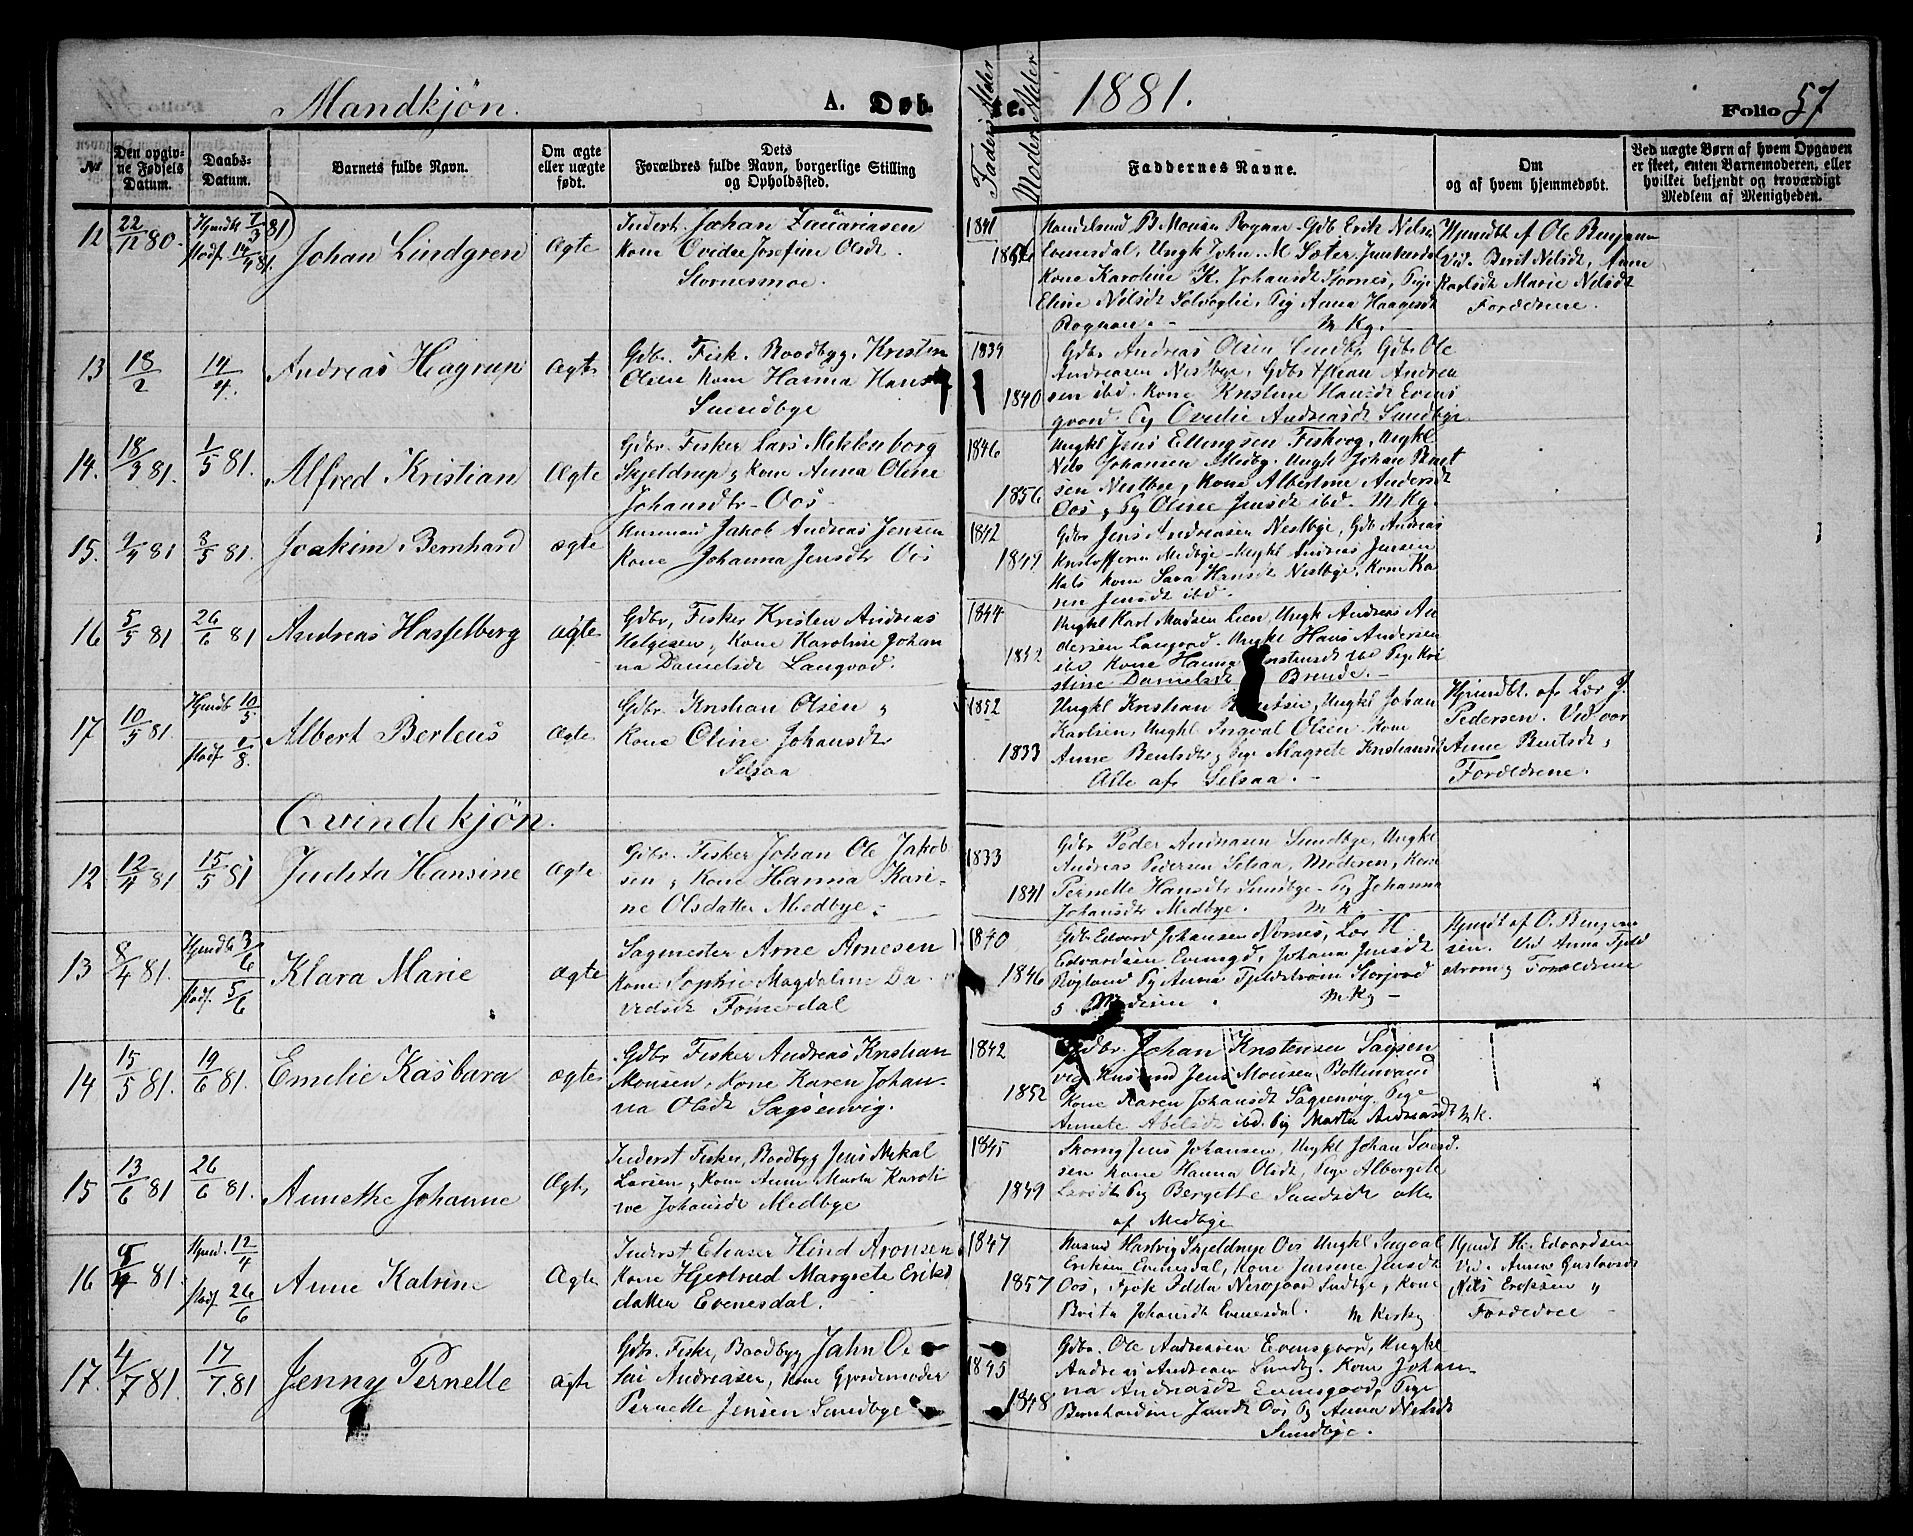 Mandkjön.
A. Døb
te.
1881.
Folio 57
No
Den opgiv-
ne Fødsels
Datum.
Daabs-
Datum.
Barnets fulde Navn.
Om ægte
eller uægte
født.
Dets
Forældres fulde Navn, borgerlige Stilling
og Opholdssted.
Faders Alder
Moders Alder
Faddernes Navne.
Om
og af hvem hjemmedøbt.
Ved uægte Børn af hvem Opgaven
er skeet, enten Barnemoderen, eller
hvilket bekjendt og troværdigt
Medlem af Menigheden.
12 22/12 80. Hjmdt 7/3 81
Stadf 14/4 81.
Johan Lindgren
Ægte
Inderst. Johan Zacariasen
Kone Ovidia Josefine Olsdt.
Stornesmoe.
1841
1856
Evensdal, Ungk John M. Sæter, Junkersdal
Kone Karoline K. Johansdt Stornes, Pige
Eline Nilsdt Solvaglie, Pig Anna Haagesdt
Rognan. M Kg.
Hjmdbt af Ole Benjamin
Vid. Berit Nilsdt, Anne
Karlsdt Marie Nilsdt
Forældrene.
13 18/2 14/4.
Andreas Hagrup
Ægte
Gdbr. Fisk. Baadbyg. Kristen
Olsen Kone Hanna Hansdt
Sundbye
1839
1840
Gdbr Andreas Olsen Sundby Gdbr Ole
Andreasen Nestbye, Gdbr Johan Andrea
sen ibd. Kone Kristine Hansdt Evens
gaard. Pg Ovidie Andreasdt Sundbye
14. 18/3 81. 1/5 81.
Alfred Kristian
Ægte
Gdbr Fisker Lars Meklenborg
Skjeldrup, Kone Anna Oline
Johansdtr Oos
1846
1856
Ungkl Jens Ellingsen Fiskvog, Ungkl
Nils Johansen Medby. Ungk Johan Bent
sen Nestbye, Kone Albertine Andersdt
Oos, Pg Oline Jensdt ibd. M Kg.
15. 9/4 81 8/5 81.
Joakim Bernhard
ægte
Husmand Jakob Andreas Jensen
Kone Johanna Jensdtr Ois
1842
1849
Gdbr Jens Andreasen Nestbye, Gdb Andreas
Kristoffersen Medbye, Ungkl Andreas Jensen
Hals Kone Sara Hansdt Nestbye, Kone Ka
ren Jensdt ibd.
16 5/5 81 26/6 81
Andreas Hasselberg
Ægte
Gdbr, Fisker Kristen Andreas
Helgesen, Kone Karoline Johan
na Danielsdt Langvad.
1844
1852
Ungkl Karl Madsen Lien, Ungk Andreas An
dersen Langvad. Ungkl Hans Andersen
ibd Kone Hanna Kristensdt ibd Pige Kri
stine Danielsdt Brende.
17 10/5 81. Hjmdb 10/5
Stadf. 1/8.
Albert Berteus
Ægte
Gdbr. Kristian Olsen,
Kone Oline Johansdtr
Selsaa
1852
1833
Ungkl Kristian Bentsen, Ungkl Johan
Karlsen, Ungkl Ingvald Olsen Kone
Anne Bentsdtr, Pige Magrete Kristiansdt
Alle af Selsaa.
Hjemdbt. af Lær J.
Pedersen. Vid var
Anne Bentsdt,
Forældrene.
Qvindekjön.
12 12/4 81 15/5 81
Judita Hansine
Ægte
Gdbr. Fisker Johan Ole Jakob
sen, Kone Hanna Kari-
ne Olsdatter Medbye.
1833
1841
Gdbr Peder Andreasen Sundbye, Ungkl
Andreas Pedersen Selsaa, Moderen, Kone
Pernelle Hansdtr Sundbye. Pg Johanna
Johansdtr Medbye. M K.
13 8/4 81. Hjmdbt 3/6
Stadf. 5/6
Klara Marie
Ægte
Sagmester Arne Arnesen
Kone Sophie Magdalene Da
vidsdt Fornesdal
1840
1846
Gdb Edvard Johansen Nornes, Lær H.
Edvardsen Evensgd, Johana Jensdt
Røgland Pg Anna Fjeldstrøm Storjord
5 Moderen. M Kg
Hjmdt af O. Benjamin
sen. Vid Anna Fjeld
strøm, Forældrene
14 15/5 81. 19/6 81.
Emelie Kasbara
ægte
Gdbr Fisker Andreas Kristian
Monsen, Kone Karen Johan-
na Olsdt Sagsenvig.
1842
1852
Gdbr Johan Kristensen Sagsen
vig Husmd Jens Monsen, Bottenvand
Kone Karen Johansdt Sagsenvig. Pige
Annete Abelsdt ibd. Pig Marta Andreasdt M K.
15 13/6 81 26/6 81.
Annethe Johanne
Ægte
Inderst Fisker, Baadbyg Jens Nikal
Larsen, Kone Anne Marta Karoli
ne Johansdt Medbye
1845
1849
Skomg Jens Johansen, Ungkl Johan Svend
sen Kone Hanna Olsdt, Pige Albergete
Larsdt Pg Bergette Svendsdt alle
af Medbye
16 9/4 81. Hjmd. 12/4
Stadf 26/6
Anne Katrine
Ægte
Inderst Eleaser Hind Aronsen
Kone Hjertrud Margrete Eriks
datter Evenesdal.
1847
1857
Husmd Hartvig Skjeldrup Ois Ungkl
Eriksen Evenesdal, Kone Jensine Jensdt
Oos, Kone
Brita Johansdt Evenesdal. M Kirky
Hjmdt H. Edvardsen
Vid. Anne Gustavsdt
Nils Eriksen,
Forældrene
17. 4/7 81. 17/7 81
Jenny Pernelle
ægte
Gdbr. Fisker, Baadbyg Jahn O
Andreasen, Kone Gjordemoder
Pernelle Jensen Sundbye
1845
1848
Gdbr. Ole Andreasen Evensgaard, Ungkl
Andreas Andreasen Sundby. Kone Johan-
na Andreasdt Evensgaard, Pige
Bernhardine Jensdt Oos Pg Anna Nilsdt
Sundbye.